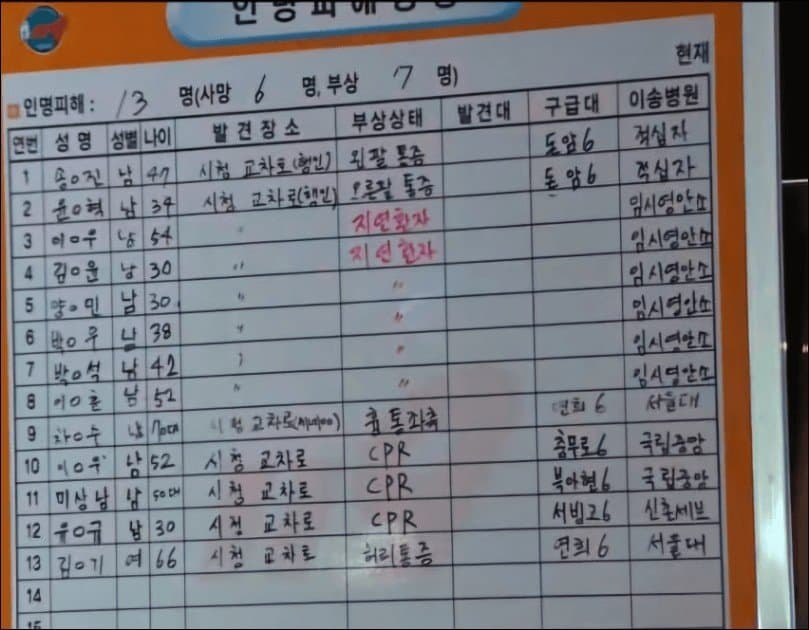 인명피해상황
현재
인명피해: 13 명(사망 6 명, 부상 7 명)
연번 성명 성별 나이 발견장소 부상상태 발견대 구급대 이송병원
1 송O진 남 47 시청 교차로(행인) 왼팔 통증 돈암6 적십자
2 윤O혁 남 34 시청 교차로(행인) 오른팔 통증 돈암6 적십자
3 이O우 남 54 " 지연환자 임시영안소
4 김O윤 남 30 " 지연환자 임시영안소
5 양O민 남 30 " " 임시영안소
6 박O우 남 38 " " 임시영안소
7 박O석 남 42 " " 임시영안소
8 이O훈 남 52 " " 임시영안소
9 차O수 남 70대 시청 교차로 흉통좌측 연희6 서울대
10 이O우 남 52 시청 교차로 CPR 충무로6 국립중앙
11 미상남 남 50대 시청 교차로 CPR 북아현6 국립중앙
12 유O규 남 30 시청 교차로 CPR 서빙고6 신촌세브
13 김O기 여 66 시청 교차로 허리통증 연희6 서울대
14
15